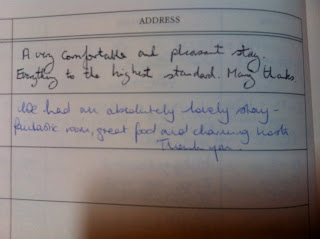 ADDRESS
A very comfortable and pleasant stay.
Everything to the highest standard. Many thanks
We had an absolutely lovely stay -
fantastic room, great food and charming hosts
Thank you.